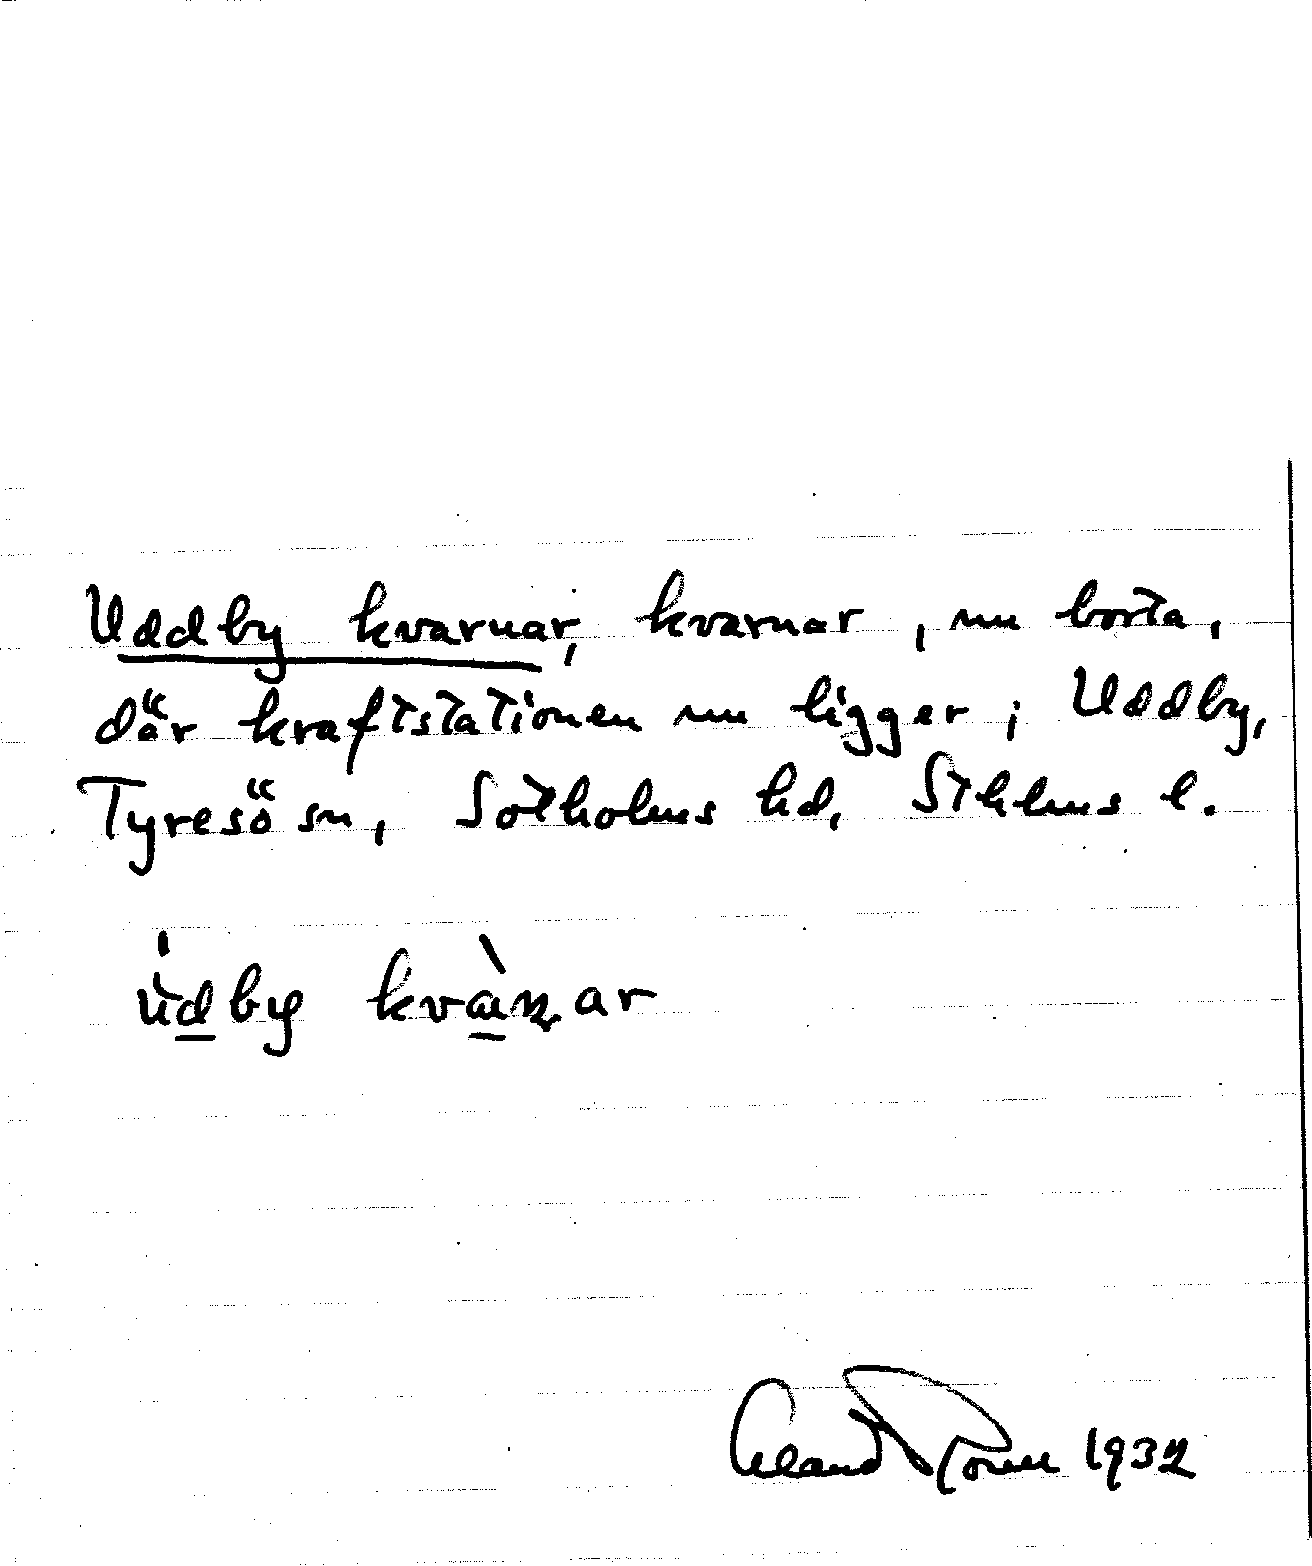 Uddby kvarnar, kvarnar, nu borta,
där kraftstationen nu ligger; Uddby,
Tyresö sn, Sotholms hd, Sthlms l.
ùdby kvàɳar
1932